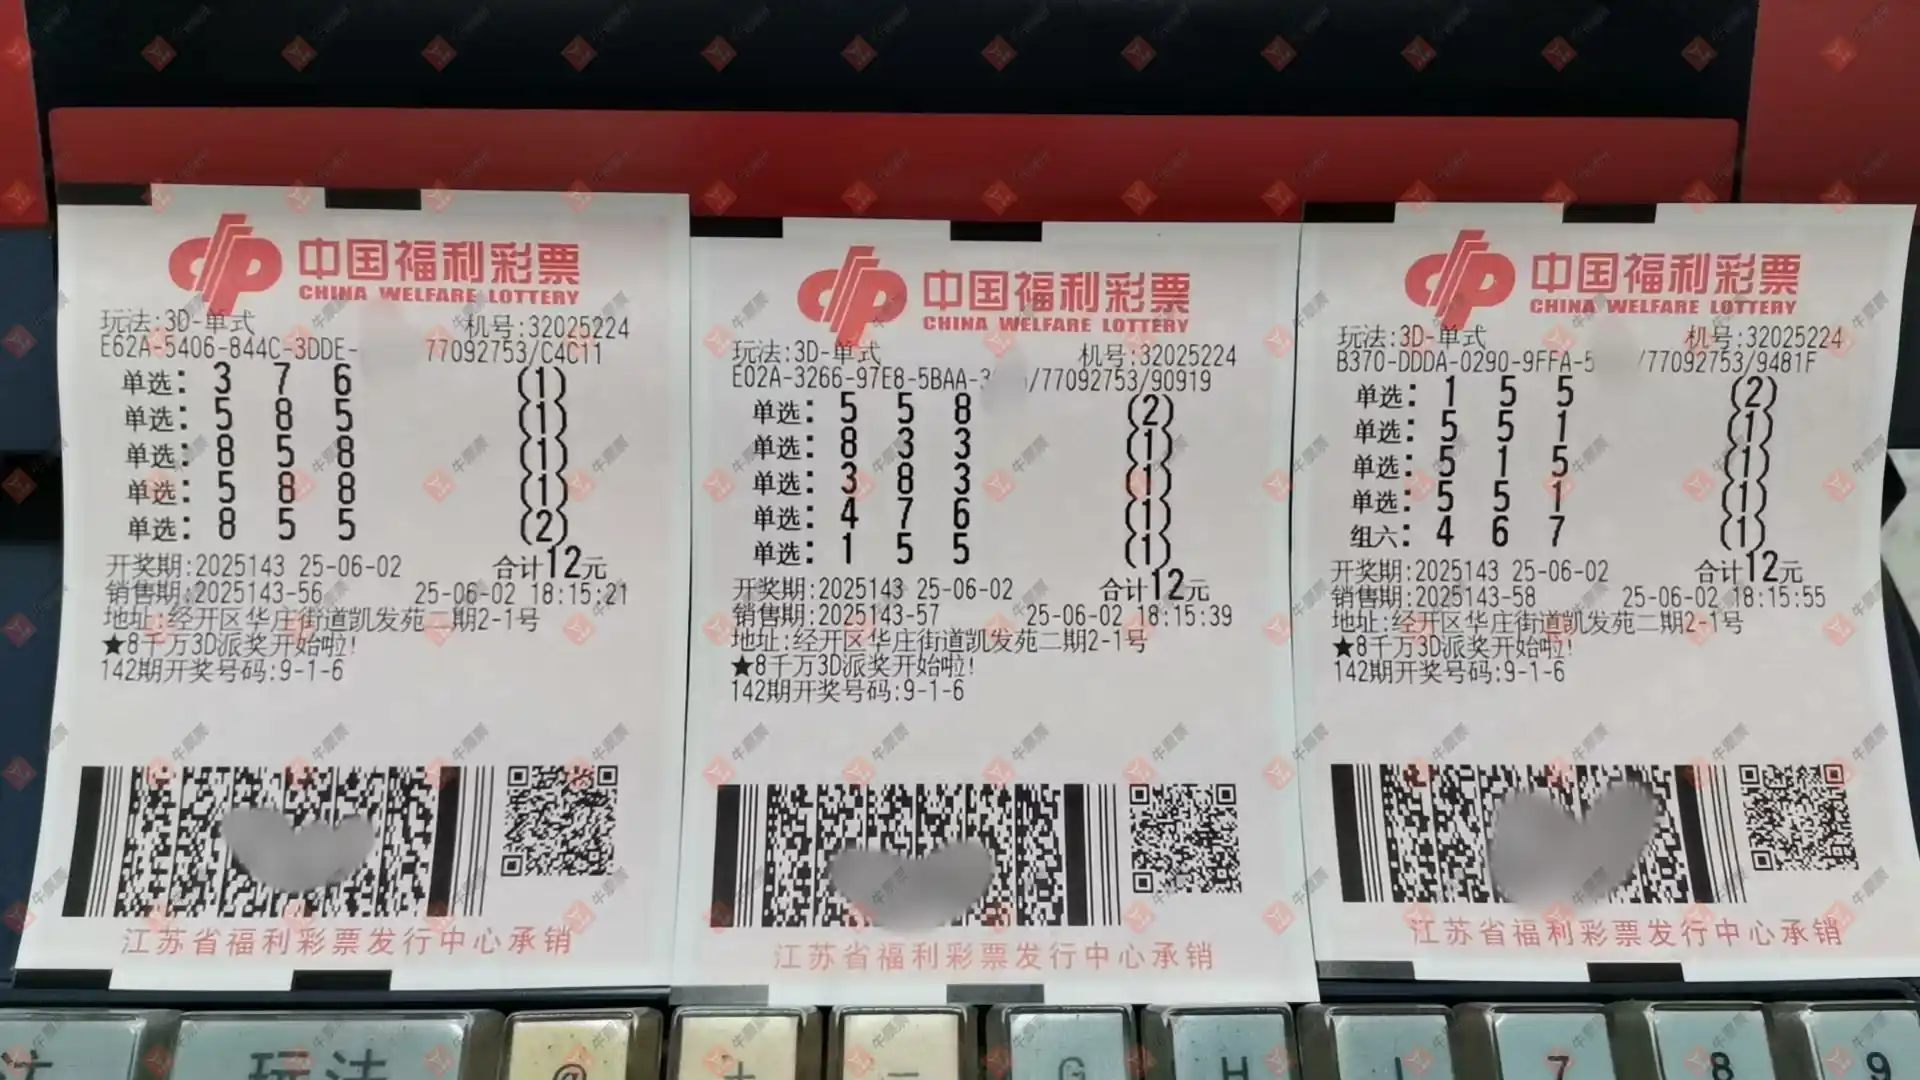 中国福利彩票
CHINA WELFARE LOTTERY
玩法:3D-单式 机号:32025224
E62A-5406-844C-3DDE- 77092753/C4C11
单选: 3 7 6 (1)
单选: 5 8 5 (1)
单选: 8 5 8 (1)
单选: 5 8 8 (1)
单选: 8 5 5 (2)
开奖期:2025143 25-06-02 合计12元
销售期:2025143-56 25-06-02 18:15:21
地址:经开区华庄街道凯发苑二期2-1号
★8千万3D派奖开始啦!
142期开奖号码:9-1-6
江苏省福利彩票发行中心承销
中国福利彩票
CHINA WELFARE LOTTERY
玩法:3D-单式 机号:32025224
E02A-3266-97E8-5BAA-3 /77092753/90919
单选: 5 5 8 (2)
单选: 8 3 3 (1)
单选: 3 8 3 (1)
单选: 4 7 6 (1)
单选: 1 5 5 (1)
开奖期:2025143 25-06-02 合计12元
销售期:2025143-57 25-06-02 18:15:39
地址:经开区华庄街道凯发苑二期2-1号
★8千万3D派奖开始啦!
142期开奖号码:9-1-6
江苏省福利彩票发行中心承销
中国福利彩票
CHINA WELFARE LOTTERY
玩法:3D-单式 机号:32025224
B370-DDDA-0290-9FFA-5 /77092753/9481F
单选: 1 5 5 (2)
单选: 5 5 1 (1)
单选: 5 1 5 (1)
单选: 5 5 1 (1)
组六: 4 6 7 (1)
开奖期:2025143 25-06-02 合计12元
销售期:2025143-58 25-06-02 18:15:55
地址:经开区华庄街道凯发苑二期2-1号
★8千万3D派奖开始啦!
142期开奖号码:9-1-6
江苏省福利彩票发行中心承销
玩法 @ + - G H I 7 8 9